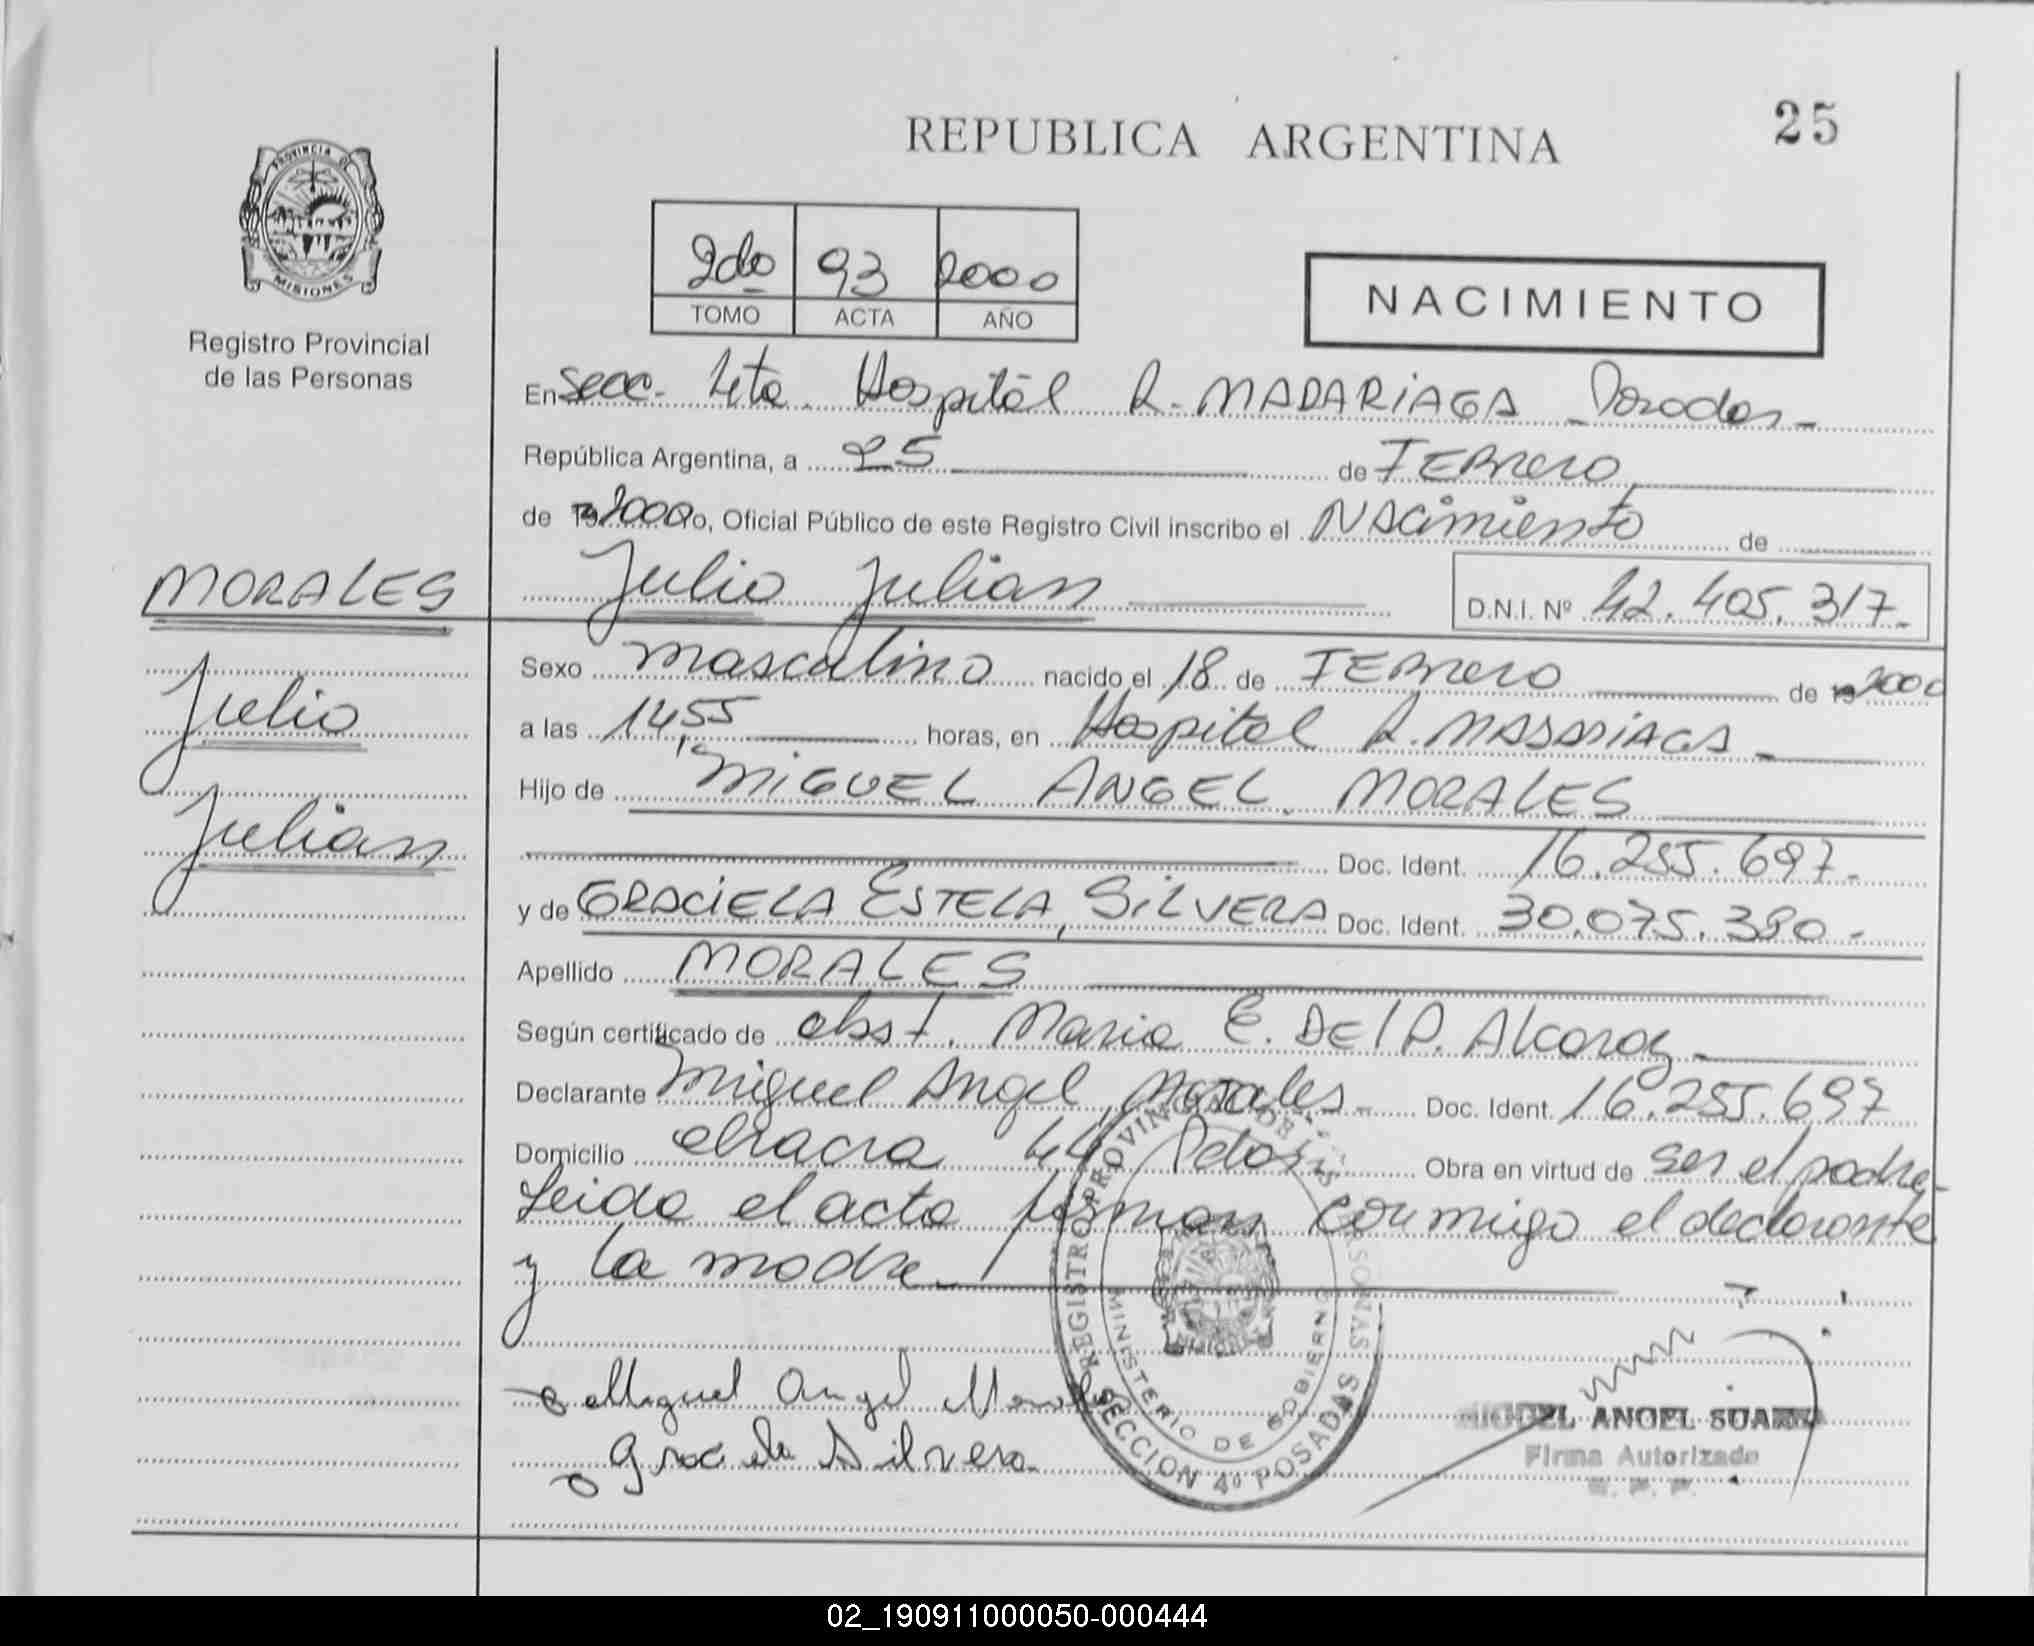 REPUBLICA ARGENTINA
25
PROVINCIA DE
MISIONES
Registro Provincial
de las Personas
2do 93 2000
TOMO ACTA AÑO
NACIMIENTO
En Secc. 4ta. Hospital R. MADARIAGA Posadas
República Argentina, a 25 de FEBRERO
de 2000 Yo, Oficial Público de este Registro Civil inscribo el NACimiento de
Julio Julian D.N.I. Nº 42.405.317.
MORALES
Julio
Julian
Sexo masculino nacido el 18 de FEBRERO de 2000
a las 14,55 horas, en Hospital R. MADARIAGA
Hijo de MIGUEL ANGEL MORALES
Doc. Ident. 16.255.697.
y de GRACIELA ESTELA, SILVERA Doc. Ident. 30.075.380.
Apellido MORALES
Según certificado de obst. Maria E. Del P. Alcaraz
Declarante Miguel Angel Morales Doc. Ident. 16.255.697
Domicilio chacra Obra en virtud de ser el padre
Leida el acta firman conmigo el declarante
y la madre
Miguel Angel Morales
Graciela Silvera
REGISTRO PROVINCIAL DE LAS PERSONAS
MINISTERIO DE GOBIERNO
SECCION 4º POSADAS
MIGUEL ANGEL SUAREZ
Firma Autorizada
02_190911000050-000444